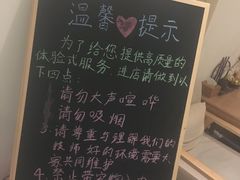 温馨❤提示
为了给您提供高质量的
体验式服务 进店请做到以
下四点:
请勿大声喧哗
请勿吸烟
3、请尊重与理解我们的
技师 好的环境需要大
家共同维护
4、禁止带宠物